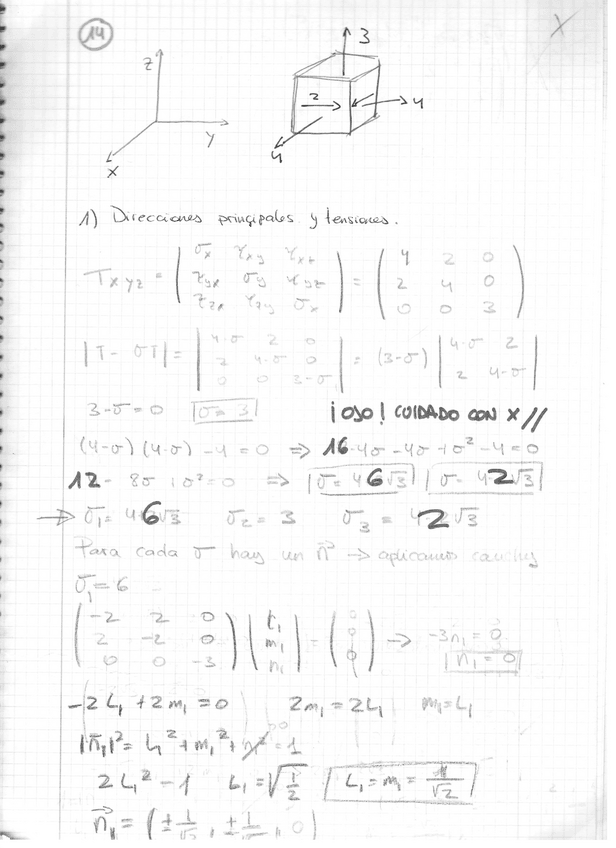 14
z
y
x
3
2
4
4
1) Direcciones principales y tensiones.
Txyz = | σx τxy τxz | = ( 4 2 0 )
| τyx σy τyz | ( 2 4 0 )
| τzx τzy σx | ( 0 0 3 )
|T - σI| = | 4-σ 2 0 | = (3-σ) | 4-σ 2 |
| 2 4-σ 0 | | 2 4-σ |
| 0 0 3-σ |
3-σ=0 σ=3 ¡OJO! CUIDADO CON X //
(4-σ) (4-σ) -4 = 0 => 16-4σ-4σ+σ²-4=0
12 - 8σ + σ²=0 => σ= 6 σ= 2
→ σ1= 6 σ2= 3 σ3= 2
Para cada σ hay un n⃗ → aplicamos cauchy
σ1=6
( -2 2 0 ) ( L1 ) = ( 0 ) → -3n1 = 0
( 2 -2 0 ) ( m1 ) ( 0 ) n1 = 0
( 0 0 -3 ) ( n1 ) ( 0 )
-2L1 + 2m1 = 0 2m1 = 2L1 m1=L1
|n⃗1|² = L1² + m1² + n² = 1
2L1² - 1 L1 = √1/2 L1 = m1 = 1/√2
n⃗1 = (± 1/√2, ± 1/√2, 0)